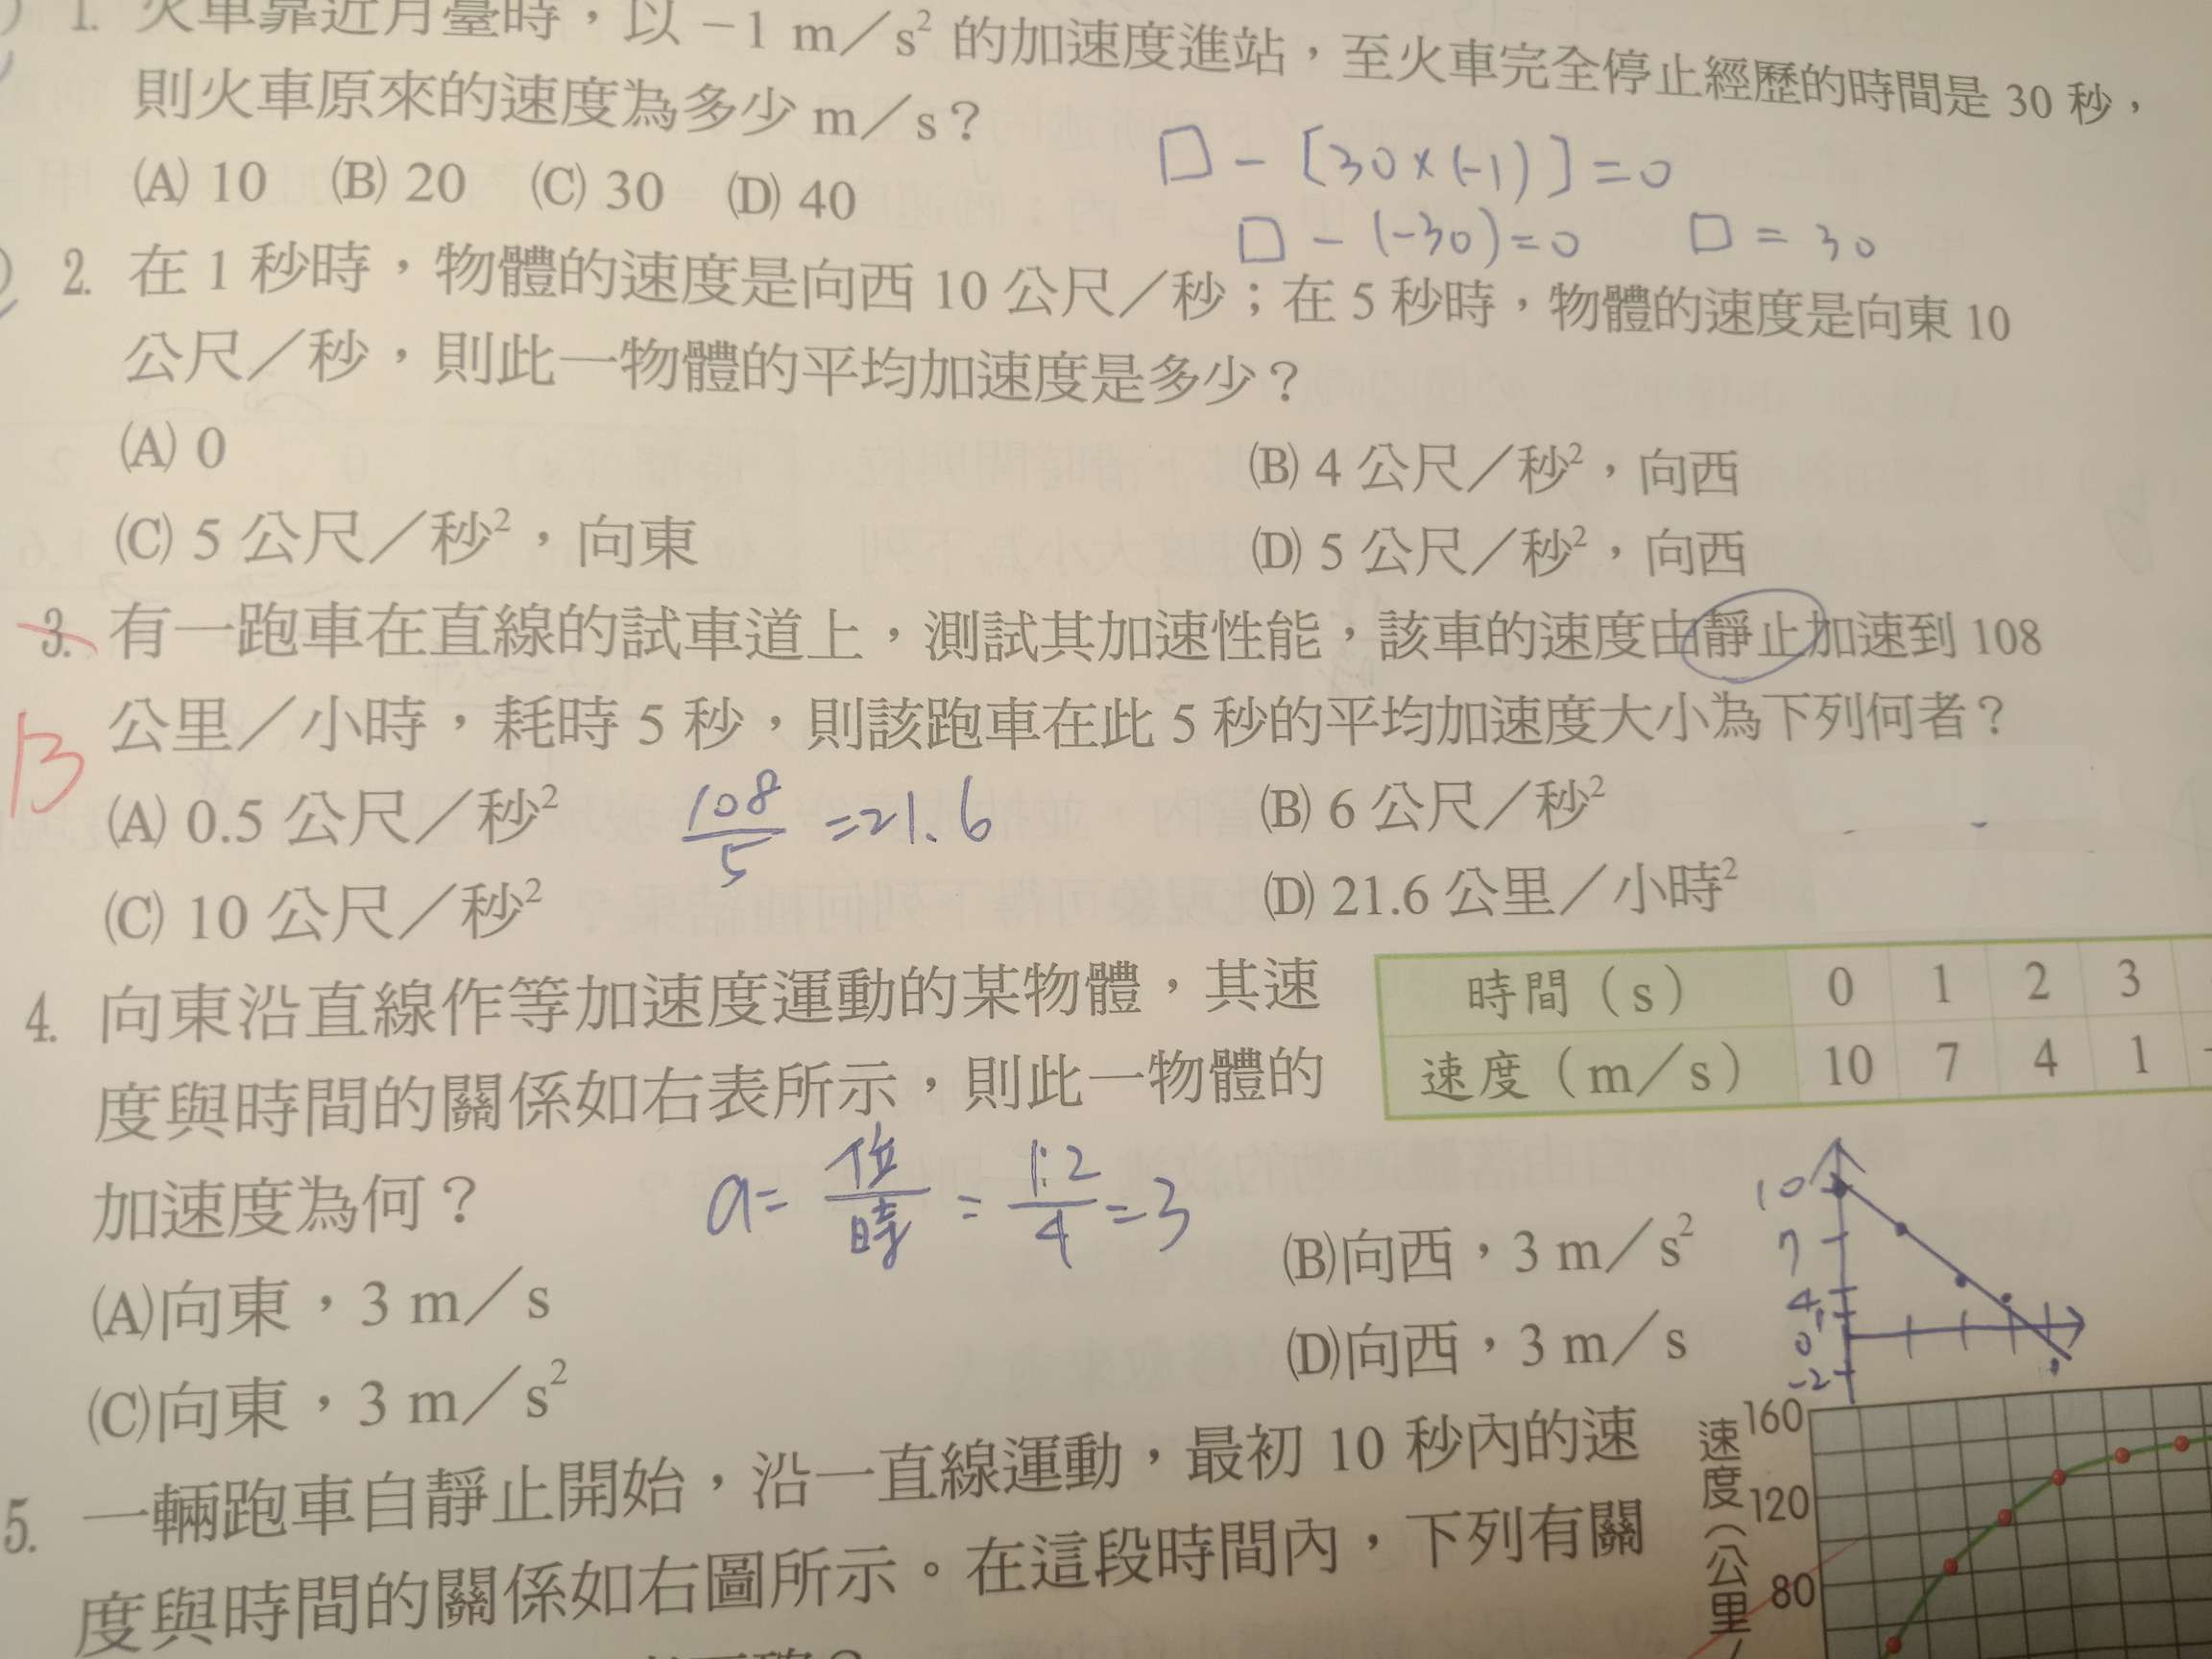 1. 火車靠近月臺時，以 −1 m／s² 的加速度進站，至火車完全停止經歷的時間是 30 秒，
則火車原來的速度為多少 m／s？
□ − [30×(-1)] = 0
(A) 10 (B) 20 (C) 30 (D) 40
□ − (-30) = 0 □ = 30
2. 在 1 秒時，物體的速度是向西 10 公尺／秒；在 5 秒時，物體的速度是向東 10
公尺／秒，則此一物體的平均加速度是多少？
(A) 0 (B) 4 公尺／秒²，向西
(C) 5 公尺／秒²，向東 (D) 5 公尺／秒²，向西
3. 有一跑車在直線的試車道上，測試其加速性能，該車的速度由靜止加速到 108
公里／小時，耗時 5 秒，則該跑車在此 5 秒的平均加速度大小為下列何者？
B
(A) 0.5 公尺／秒² (B) 6 公尺／秒²
108/5 = 21.6
(C) 10 公尺／秒² (D) 21.6 公里／小時²
4. 向東沿直線作等加速度運動的某物體，其速
度與時間的關係如右表所示，則此一物體的
加速度為何？
時間（s） 0 1 2 3
速度（m／s） 10 7 4 1
a = 位/時 = 12/4 = 3
(A)向東，3 m／s (B)向西，3 m／s²
(C)向東，3 m／s² (D)向西，3 m／s
10
7
4
1
0
-2
5. 一輛跑車自靜止開始，沿一直線運動，最初 10 秒內的速
度與時間的關係如右圖所示。在這段時間內，下列有關
速度（公里／
160
120
80